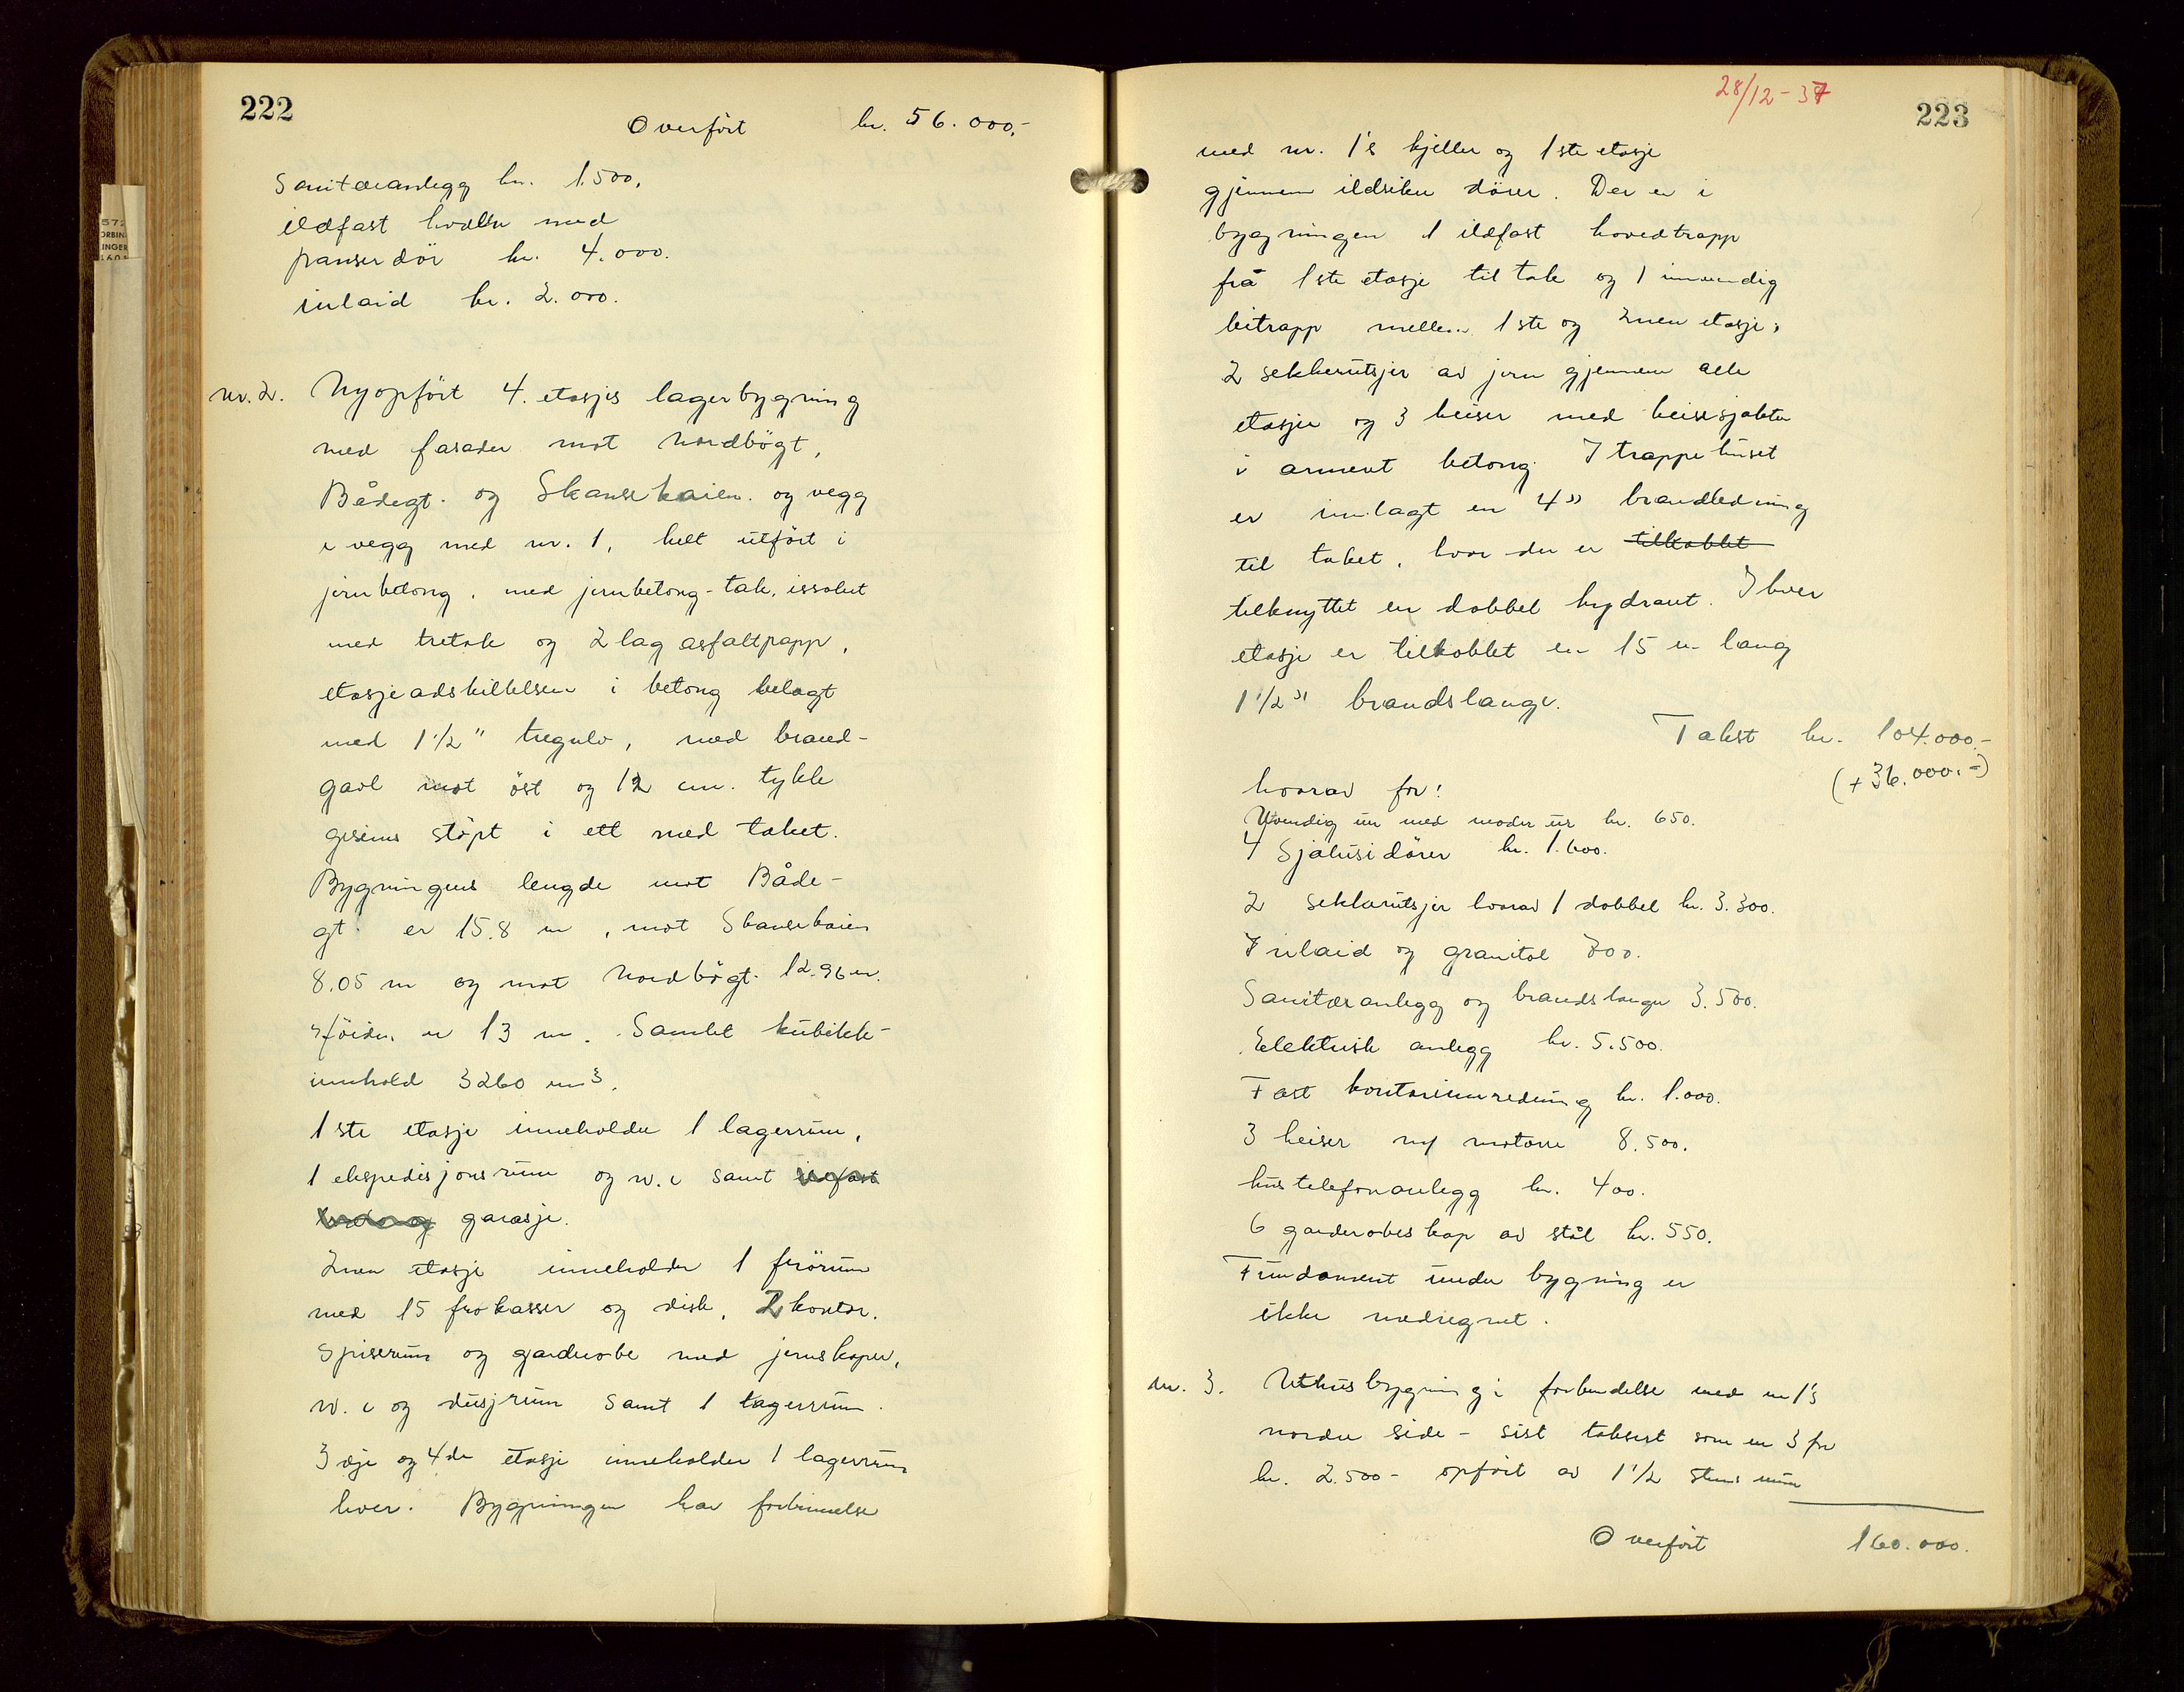 222
Overført kr. 56.000.-
Sanitæranlegg kr. 1.500.
ildfast hvelv med
panserdör kr. 4.000.
inlaid kr. 2.000.
nr. 2. Nyopfört 4. etasjes lagerbygning
med fasader mot Nordbögt,
Bådegt. og Skansekaien. og vegg
i vegg med nr. 1, helt utfört i
jernbetong, med jernbetong-tak, issolert
med tretak og 2 lag asfaltpapp,
etasjeadskillelsen i betong belagt
med 1 1/2" tregulv, med brand-
gavl mot öst og 12 cm. tykke
gesims stöpt i ett med taket.
Bygningens lengde mot Både-
gt. er 15.8 m, mot Skansekaien
8.05 m og mot Nordbögt. 12.96 m.
Höiden er 13 m. Samlet kubikk-
innhold 3260 m3.
1ste etasje inneholder 1 lagerrum,
1 ekspedisjonsrum og w.c samt ildfast
garasje.
2nen etasje inneholder 1 frörum
med 15 frökasser og disk, 2 kontor.
Spiserum og garderobe med jernskaper,
w.c og dusjrum samt 1 lagerrum.
3dje og 4de etasje inneholder 1 lagerrum
hver. Bygningen har forbinnelse
28/12-37
223
med nr. 1's kjeller og 1ste etasje
gjennem ildsikre dörer. Der er i
bygningen 1 ildfast hovedtrapp
frå 1ste etasje til tak og 1 innvendig
bitrapp mellem 1ste og 2nen etasje,
2 sekkerutsjer av jern gjennem alle
etasjer og 3 heiser med heisesjakter
i armert betong. I trappehuset
er innlagt en 4" brandledning
til taket, hvor der er tilkoblet
tilknyttet en dobbel hydrant. I hver
etasje er tilkoblet en 15 m lang
1 1/2" brandslange.
Takst kr. 104.000.-
(+36.000.-)
hvorav for:
Utvendig ur med moder ur kr. 650.
4 Sjalusidörer kr. 1.600.
2 sekkerutsjer hvorav 1 dobbel kr. 3.300.
Inlaid og granitol 700.
Sanitæranlegg og brandslanger 3.500.
Elektrisk anlegg kr. 5.500.
Fast kontorinnredning kr. 1.000.
3 heiser m/ motorer 8.500.
hustelefonanlegg kr. 400.
6 garderobeskap av stål kr. 550.
Fundament under bygning er
ikke medregnet.
nr. 3. Uthusbygning i forbindelse med nr 1's
nordre side - sist taksert som nr 3 for
kr. 2.500- opfört av 1 1/2 stens mur
Overfört 160.000.